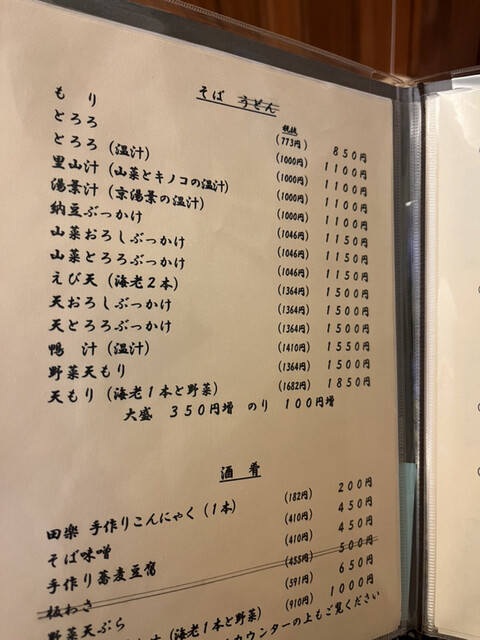 そば うどん
税抜
もり (773円) 850円
とろろ (1000円) 1100円
とろろ(温汁) (1000円) 1100円
里山汁(山菜とキノコの温汁) (1000円) 1100円
湯葉汁(京湯葉の温汁) (1000円) 1100円
納豆ぶっかけ (1046円) 1150円
山菜おろしぶっかけ (1046円) 1150円
山菜とろろぶっかけ (1046円) 1150円
えび天(海老2本) (1364円) 1500円
天おろしぶっかけ (1364円) 1500円
天とろろぶっかけ (1364円) 1500円
鴨 汁(温汁) (1410円) 1550円
野菜天もり (1364円) 1500円
天もり(海老1本と野菜) (1682円) 1850円
大盛 350円増 のり 100円増
酒 肴
田楽 手作りこんにゃく(1本) (182円) 200円
そば味噌 (410円) 450円
手作り蕎麦豆腐 (410円) 450円
板わさ (455円) 500円
野菜天ぷら (591円) 650円
(海老1本と野菜) (910円) 1000円
カウンターの上もご覧ください